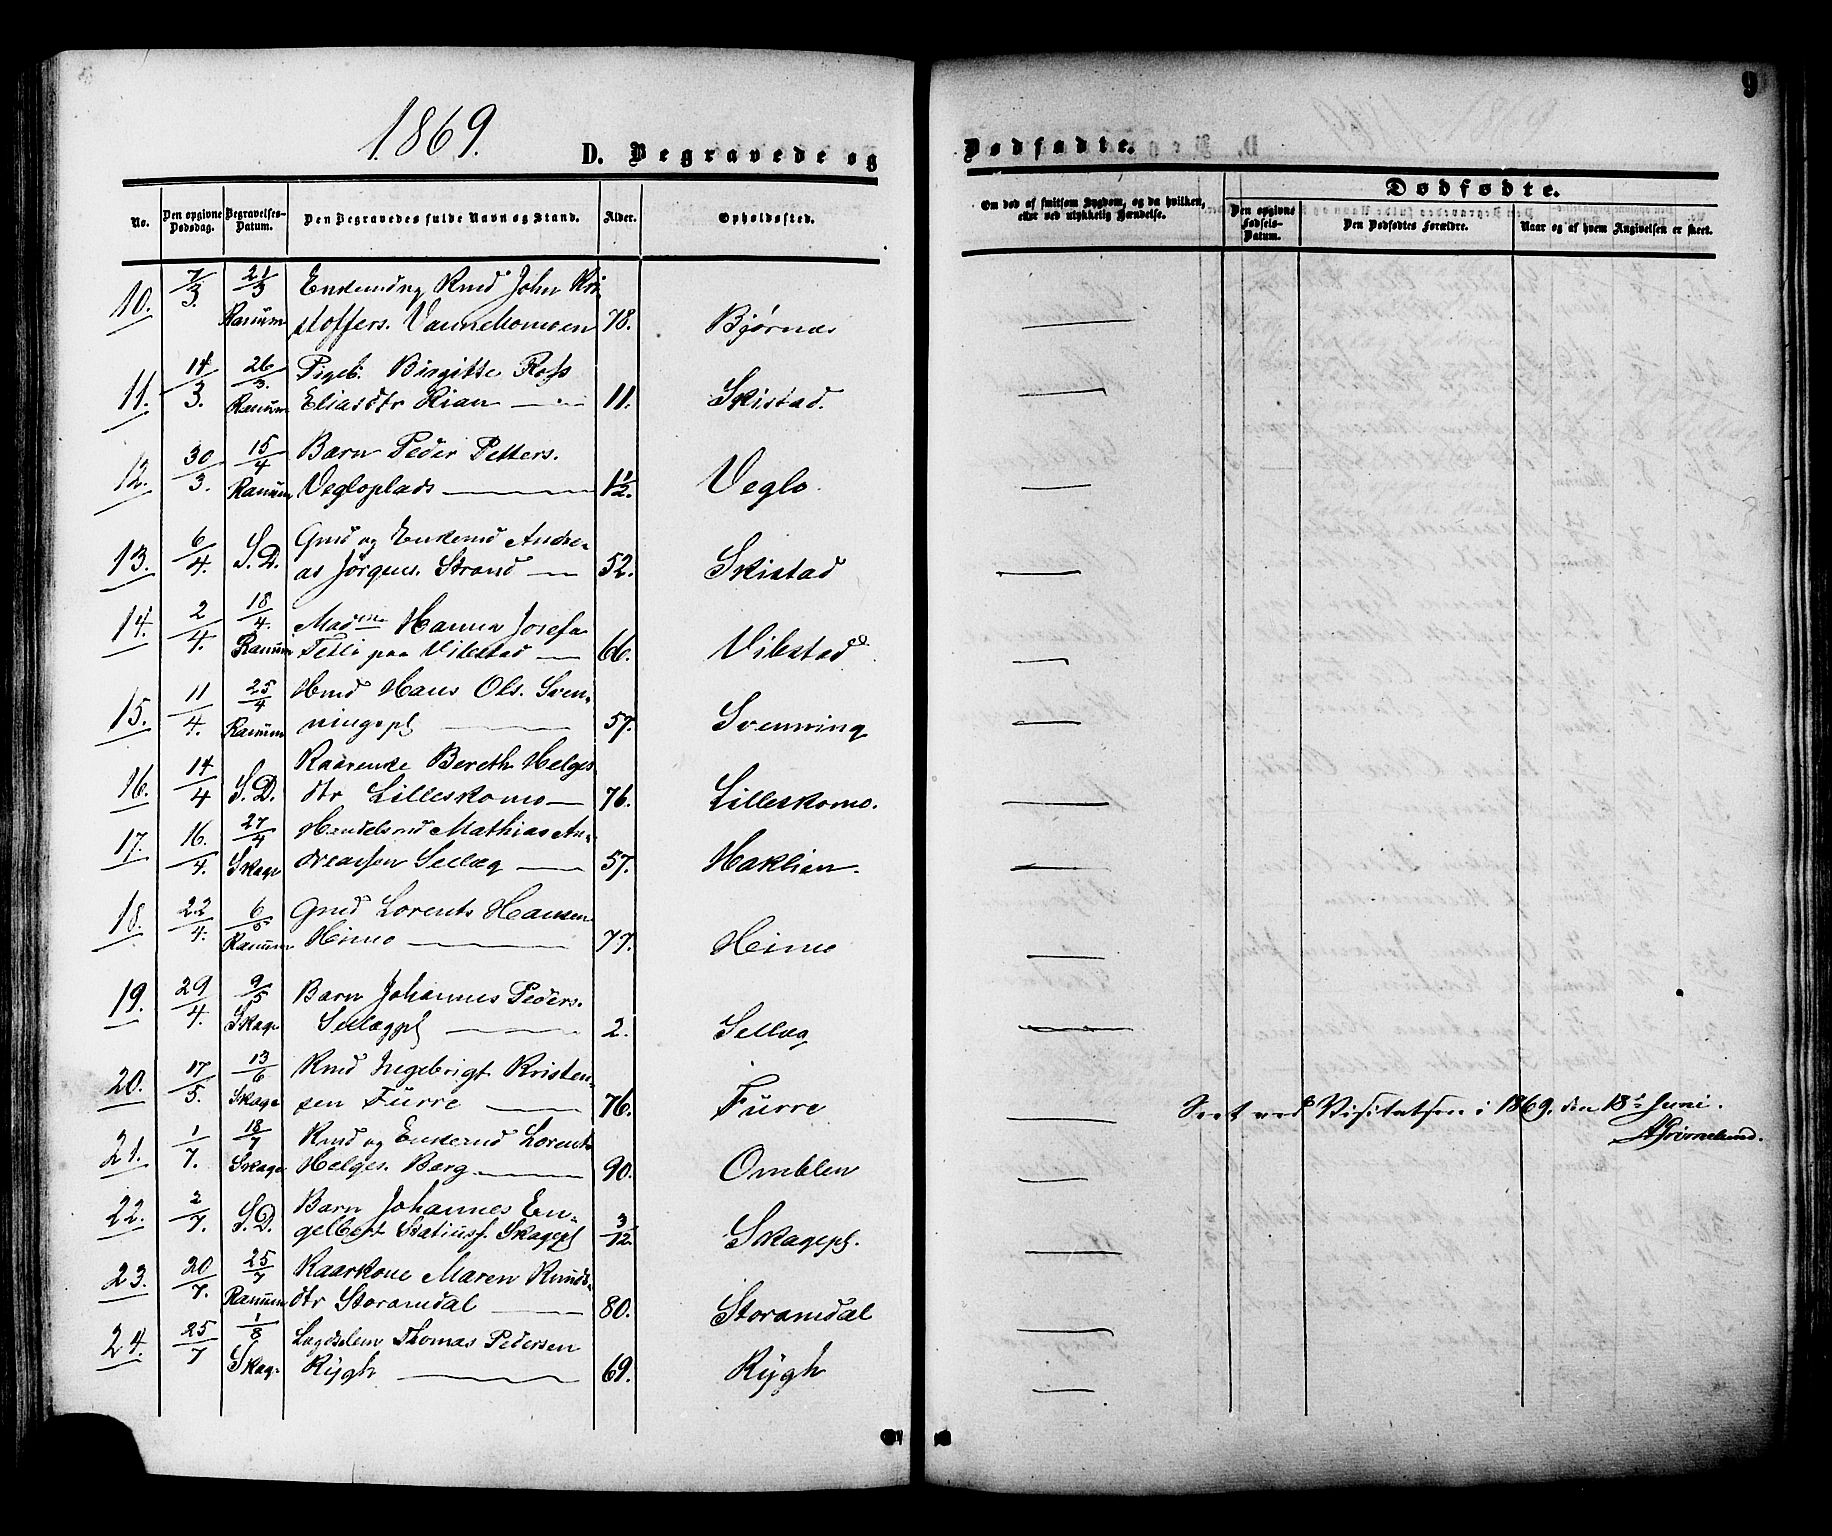 1869.
D. Begravede og
Dødfødte.
9
No.
Den opgivne Dødsdag.
Begravelses-Datum.
Den Begravedes fulde Navn og Stand.
Alder.
Opholdssted.
Om død af smitsom Sygdom, og da hvilken, eller ved ulykkelig Hændelse.
Dødfødte.
Den opgivne Fødsels-Datum.
Den Dødfødtes Forældre.
Naar og af hvem Angivelsen er skeet.
10. 7/3. 21/3 Enkemd og Kmd John Kri-
Ranum stoffers. Vannebomoen 78. Bjørnes
11. 14/3. 26/3. Pigeb. Birgitte
Ranum Eliasdtr Rian 11. Skistad.
12. 30/3. 15/4 Barn Peder Petters.
Ranum Vegloplads 1 1/2. Veglo.
13. 6/4. S.D. Gmd og Enkemd Andre-
as Jörgens. Strand 52. Skistad
14. 2/4. 18/4. Madme Hanna Josefa
Ranum paa Vibstad 66. Vibstad
15. 11/4. 25/4 Hmd Hans Ols. Sven-
Ranum ningspl 57. Svenning
16. 14/4 S.D. Kaarenke Bereth Helges-
dtr Lilleskomo 76. Lilleskomo.
17. 16./4. 27/4 Handelsmd Mathias An-
Skage dreassen Sellæg 57. Haklien.
18. 22/4. 6/5 Gmd Lorents Hansen
Ranum Heimo 77. Heimo
19. 29/4. 9/5 Barn Johannes Peders.
Skage Sellægpl 2. Sellæg
20. 17/5. 13/6 Kmd Ingebrigt Kristen-
Skage sen Fürre 76. Fürre
Seet ved Visitatsen i 1869. den 18de Juni.
21. 1/7. 18/7 Kmd og Enkemd Lorents
Skage Helges. Barg 90. Omblen
22. 2/7. S.D. Barn Johannes En-
gelbert Statiusf. Skagepl 3/12. Skagepl.
23. 20/7. 25/7 Kaarkone Maren Knuds-
Ranum dtr Storamdal 80. Storamdal
24. 25/7 1/8 Lægdslem Thomas Pedersen
Skage Rÿgh 69. Rÿgh